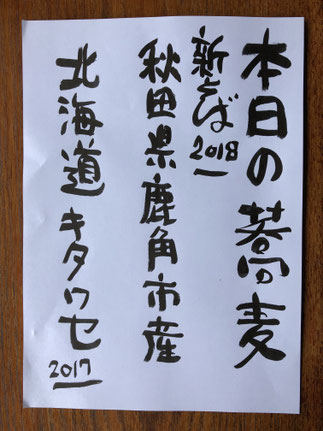 本日の蕎麦
新そば
2018
秋田県鹿角市産
北海道キタワセ
2017